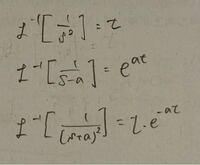 ℒ⁻¹[1/s²] = t
ℒ⁻¹[1/(s-a)] = e^{at}
ℒ⁻¹[1/(s+a)²] = t·e^{-at}